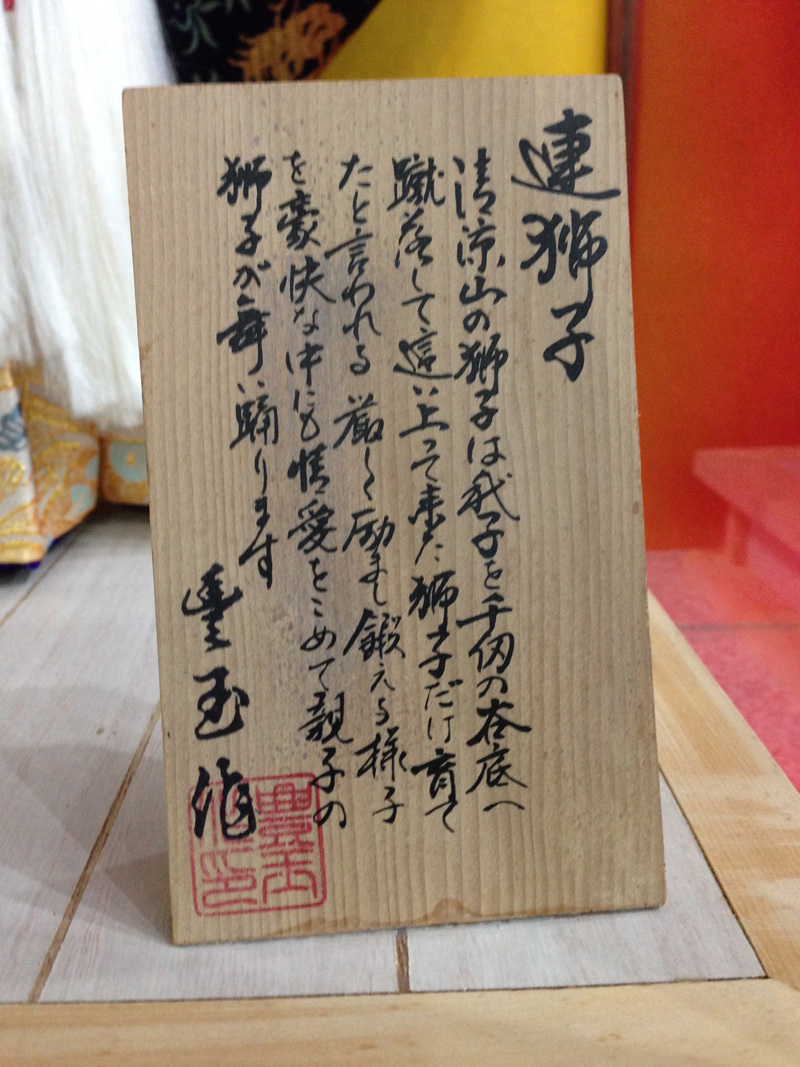 連獅子
清涼山の獅子は我子を千仭の谷底へ
蹴落して這い上って来た獅子だけ育て
たと言われる厳しく励まし鍛える様子
を豪快な中にも情愛をこめて親子の
獅子が舞い踊ります
豊玉作
豊玉
作印